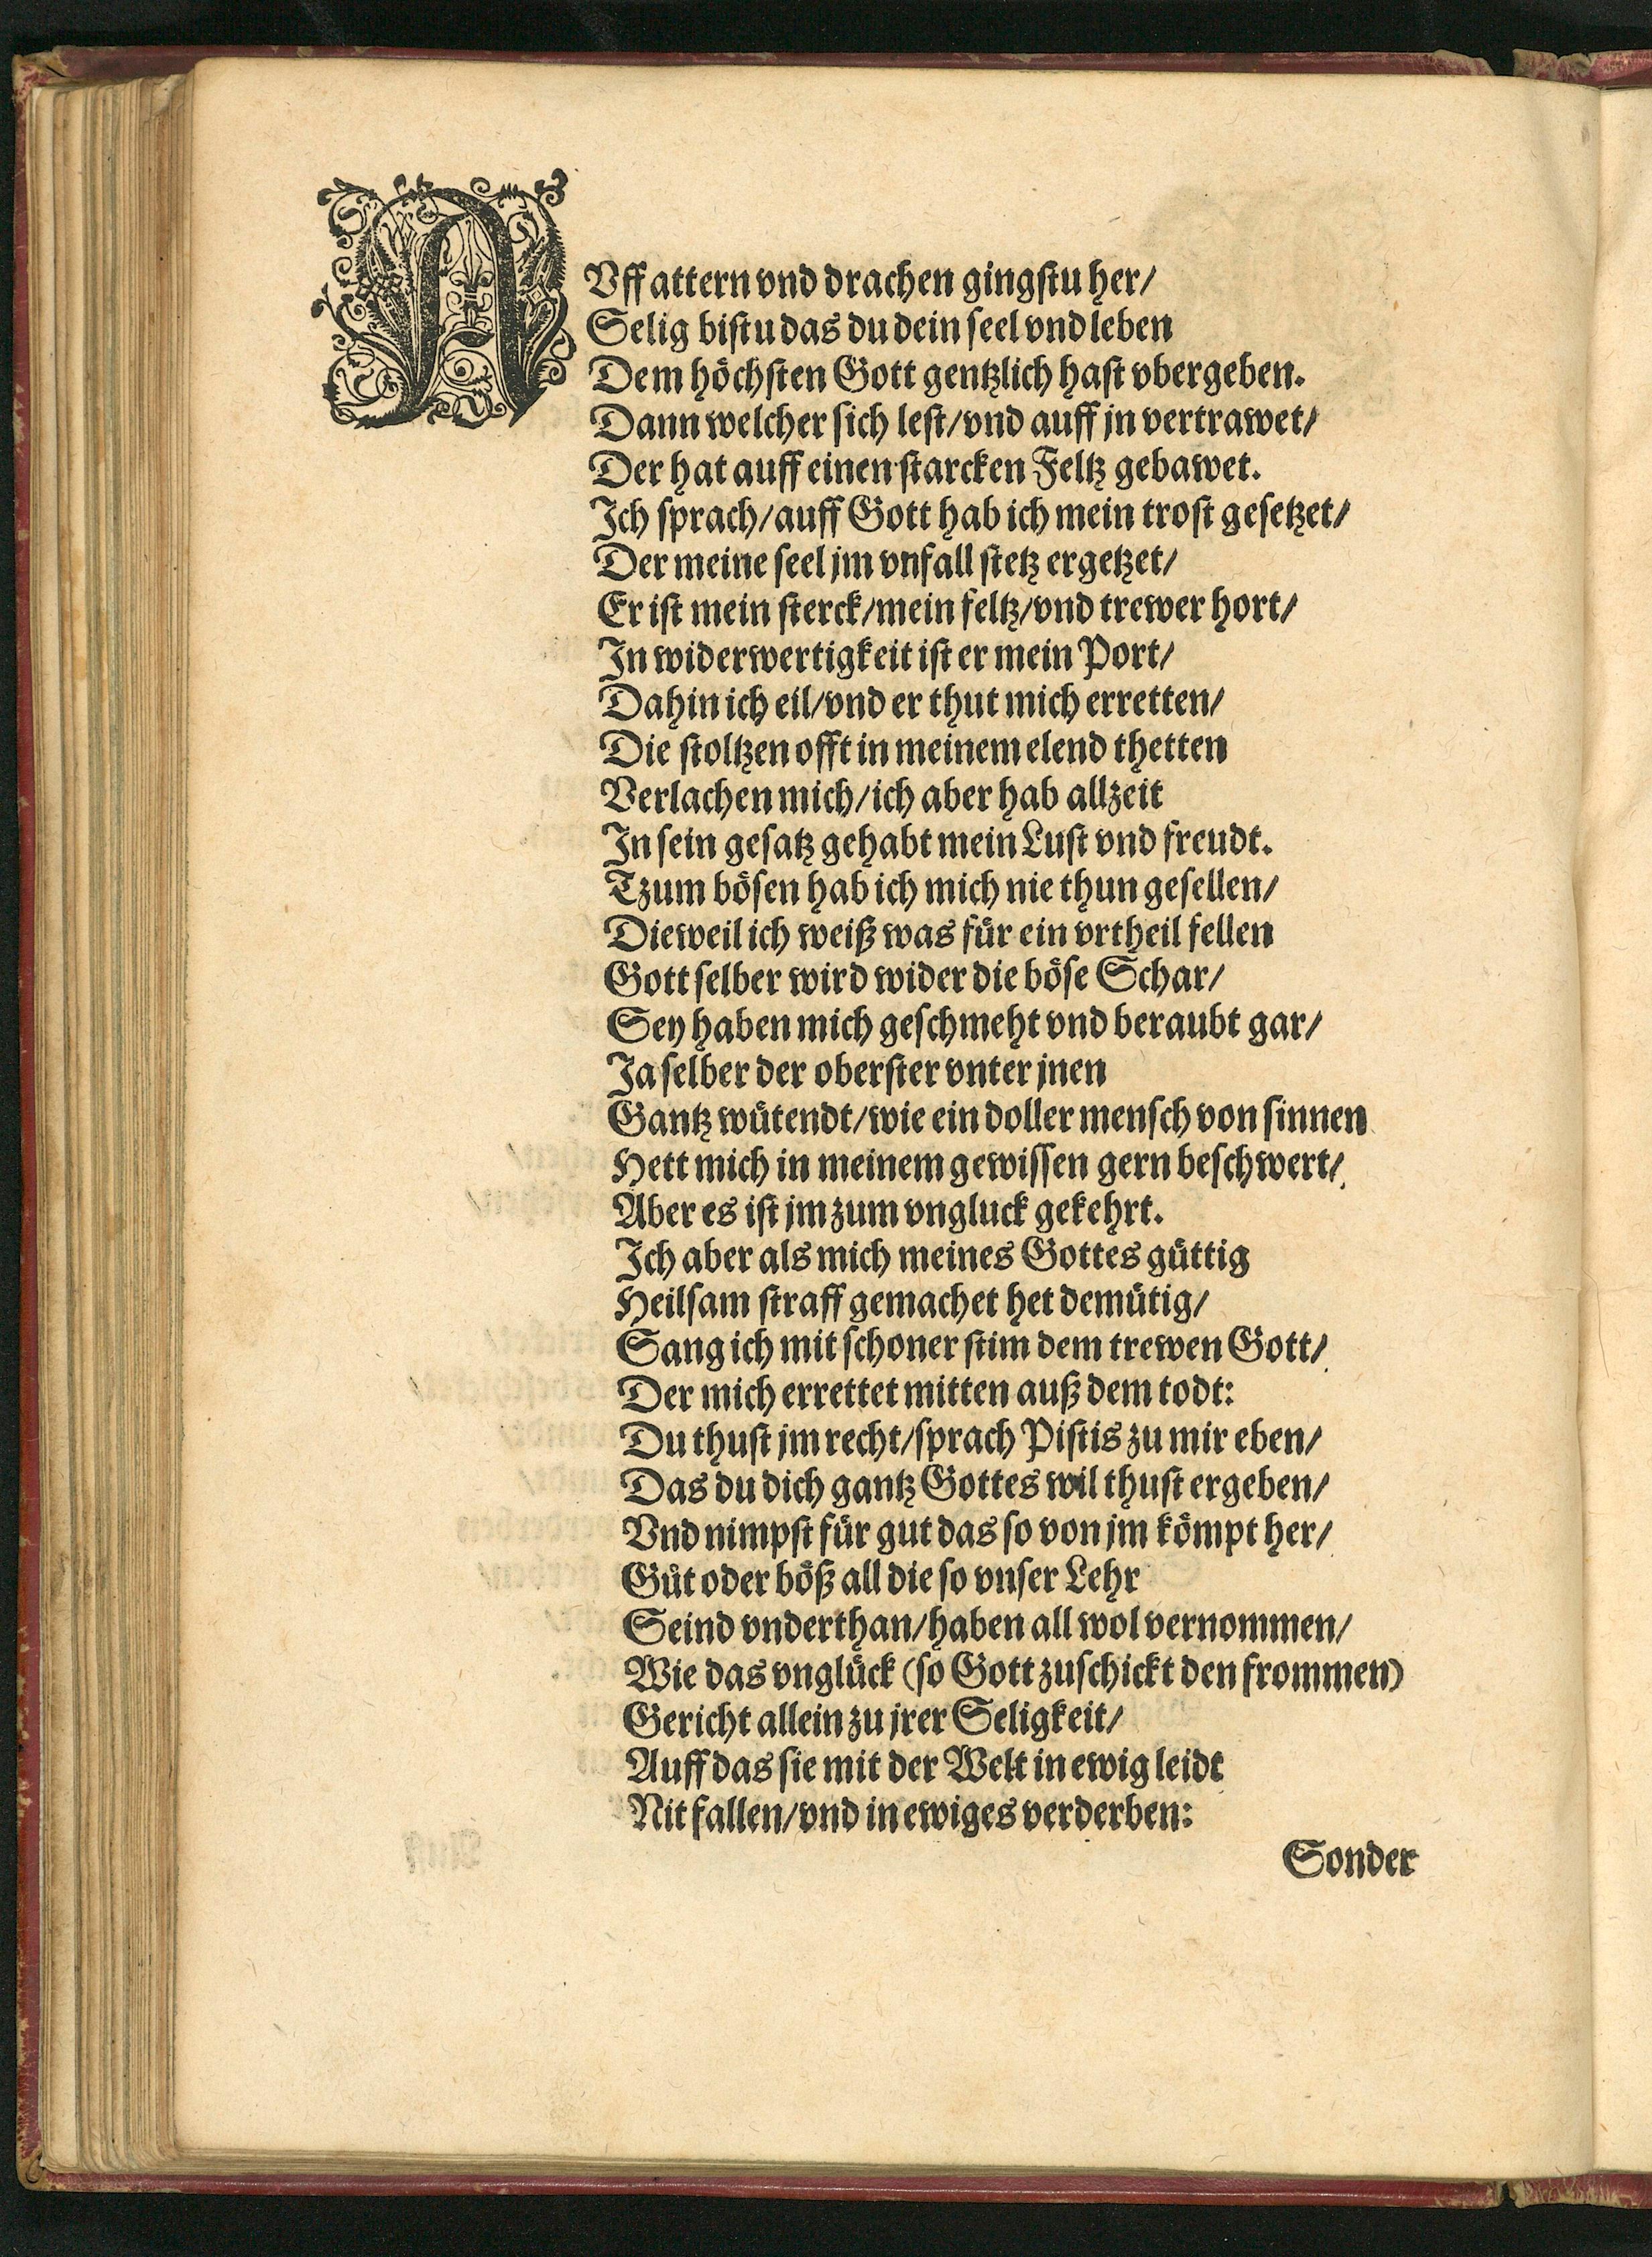 AUff attern vnd drachen gingstu her/
Selig bistu das du dein seel vnd leben
Dem höchsten Gott gentzlich hast vbergeben.
Dann welcher sich lest/vnd auff jn vertrawet/
Der hat auff einen starcken Feltz gebawet.
Ich sprach/auff Gott hab ich mein trost gesetzet/
Der meine seel jm vnfall stetz ergetzet/
Er ist mein sterck/mein feltz/vnd trewer hort/
In widerwertigkeit ist er mein Port/
Dahin ich eil/vnd er thut mich erretten/
Die stoltzen offt in meinem elend thetten
Verlachen mich/ich aber hab allzeit
In sein gesatz gehabt mein Lust vnd freudt.
Tzum bösen hab ich mich nie thun gesellen/
Dieweil ich weiß was für ein vrtheil fellen
Gott selber wird wider die böse Schar/
Sey haben mich geschmeht vnd beraubt gar/
Ja selber der oberster vnter jnen
Gantz wütendt/wie ein doller mensch von sinnen
Hett mich in meinem gewissen gern beschwert/
Aber es ist jm zum vngluck gekehrt.
Ich aber als mich meines Gottes güttig
Heilsam straff gemachet het demütig/
Sang ich mit schoner stim dem trewen Gott/
Der mich errettet mitten auß dem todt:
Du thust jm recht/sprach Pistis zu mir eben/
Das du dich gantz Gottes wil thust ergeben/
Vnd nimpst für gut das so von jm kömpt her/
Gůt oder böß all die so vnser Lehr
Seind vnderthan/haben all wol vernommen/
Wie das vnglück (so Gott zuschickt den frommen)
Gericht allein zu jrer Seligkeit/
Auff das sie mit der Welt in ewig leidt
Nit fallen/vnd in ewiges verderben:
Sonder